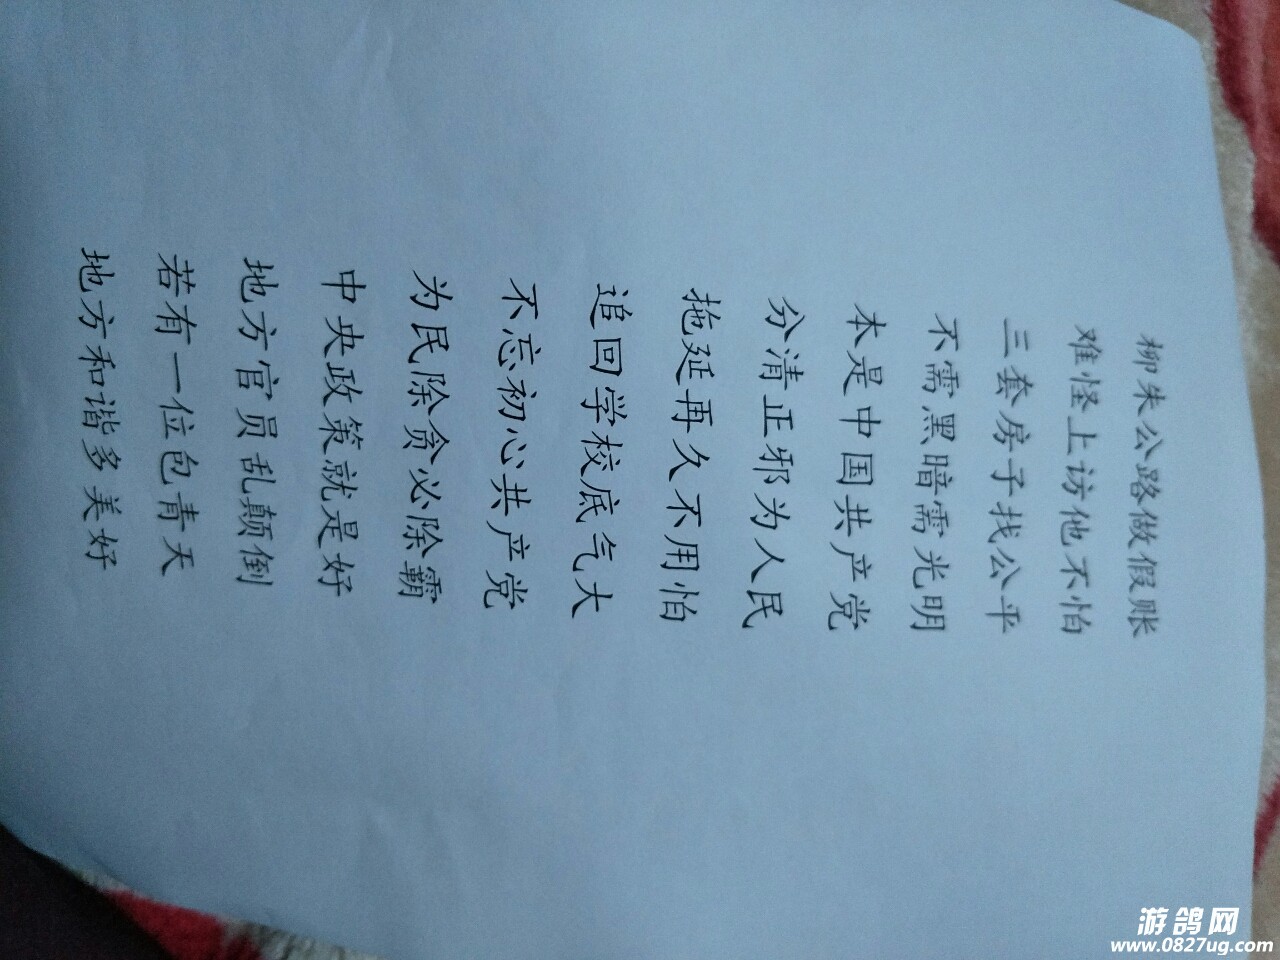 柳朱公路做假账
难怪上访他不怕
三套房子找公平
不需黑暗需光明
本是中国共产党
分清正邪为人民
拖延再久不用怕
追回学校底气大
不忘初心共产党
为民除贪必除霸
中央政策就是好
地方官员乱颠倒
若有一位包青天
地方和谐多美好
游鸽网
www.0827ug.com